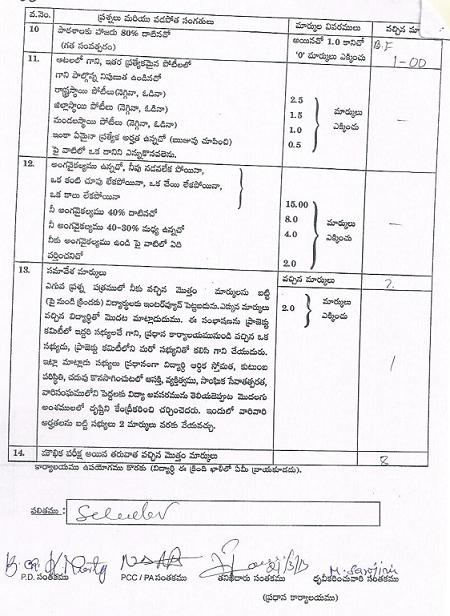 వ.నెం. ప్రశ్నలు మరియు వడపోత సంగతులు మార్కుల వివరములు వచ్చిన మా
10 పాఠశాలకు హాజరు 80% దాటినచో అయినచో 1.0 కానిచో B.F
(గత సంవత్సరం) '0' మార్కులు ఎక్కించు 1-00
11. ఆటలలో గాని, ఇతర ప్రత్యేకమైన పోటీలలో
గాని పాల్గొన్న నిపుణత ఉండినచో
రాష్ట్రస్థాయి పోటీలు(నెగ్గినా, ఓడినా) 2.5
జిల్లాస్థాయి పోటీలు (నెగ్గినా, ఓడినా) 1.5 మార్కులు —
మండలస్థాయి పోటీలు (నెగ్గినా, ఓడినా) 1.0 ఎక్కించు
ఇంకా ఏమైనా ప్రత్యేక అర్హత ఉన్నచో (ఋజువు చూపించి) 0.5
పై వాటిలో ఒక దానిని ఎన్నుకొనవలెను.
12. అంగవైకల్యము ఉన్నచో, నీవు నడవలేక పోయినా,
ఒక కంటి చూపు లేకపోయినా, ఒక చేయి లేకపోయినా,
ఒక కాలు లేకపోయినా 15.00
నీ అంగవైకల్యము 40% దాటినచో 8.0 మార్కులు —
నీ అంగవైకల్యము 40-30% మధ్య ఉన్నచో 4.0 ఎక్కించు
నీకు అంగవైకల్యము ఉండి పై వాటిలో ఏది
వర్తించనిచో 2.0
13. సమావేశ మార్కులు వచ్చిన మార్కులు 2.
ఎగువ ప్రశ్న పత్రములో నీకు వచ్చిన మొత్తం మార్కులను బట్టి
(పై నుండి క్రిందకు) విద్యార్థులకు ఇంటర్వ్యూన్ పెట్టబడును.ఎక్కువ మార్కులు 2.0 మార్కులు
వచ్చిన విద్యార్థితో మొదట మాట్లాడుదుము. ఈ సంభాషణను ప్రాజెక్టు ఎక్కించు
కమిటీలో ఇద్దరి సభ్యులచే గాని, ప్రధాన కార్యాలయమునుండి వచ్చిన ఒక
సభ్యుడు, ప్రాజెక్టు కమిటీలోని మరో సభ్యునితో కలిసి గాని చేయుదురు.
ఇట్లా మాట్లాడు సభ్యులు ప్రధానంగా విద్యార్థి ఆర్థిక స్తోమత, కుటుంబ
పరిస్థితి, చదువు కొనసాగించుటలో ఆసక్తి, వ్యక్తిత్వము, సాంఘిక సేవాతత్పరత,
వారిసంఘములోని పెద్దలకు విద్యా అవసరమును తెలియజెప్పుట మొదలగు
అంశములలో దృష్టిని కేంద్రీకరించి చర్చించెదరు. ఇందులో వారివారి
అర్హతలను బట్టి సభ్యులు 2 మార్కులు వరకు వేయవచ్చు.
14. మౌఖిక పరీక్ష అయిన తరువాత వచ్చిన మొత్తం మార్కులు 8
కార్యాలయము ఉపయోగము కొరకు (విద్యార్థి ఈ క్రింది ఖాళీలో ఏమీ వ్రాయకూడదు).
ఫలితము :
P.D. సంతకము PCC / PA సంతకము తనిఖీదారు సంతకము ధృవీకరించువారి సంతకము
(ప్రధాన కార్యాలయం)